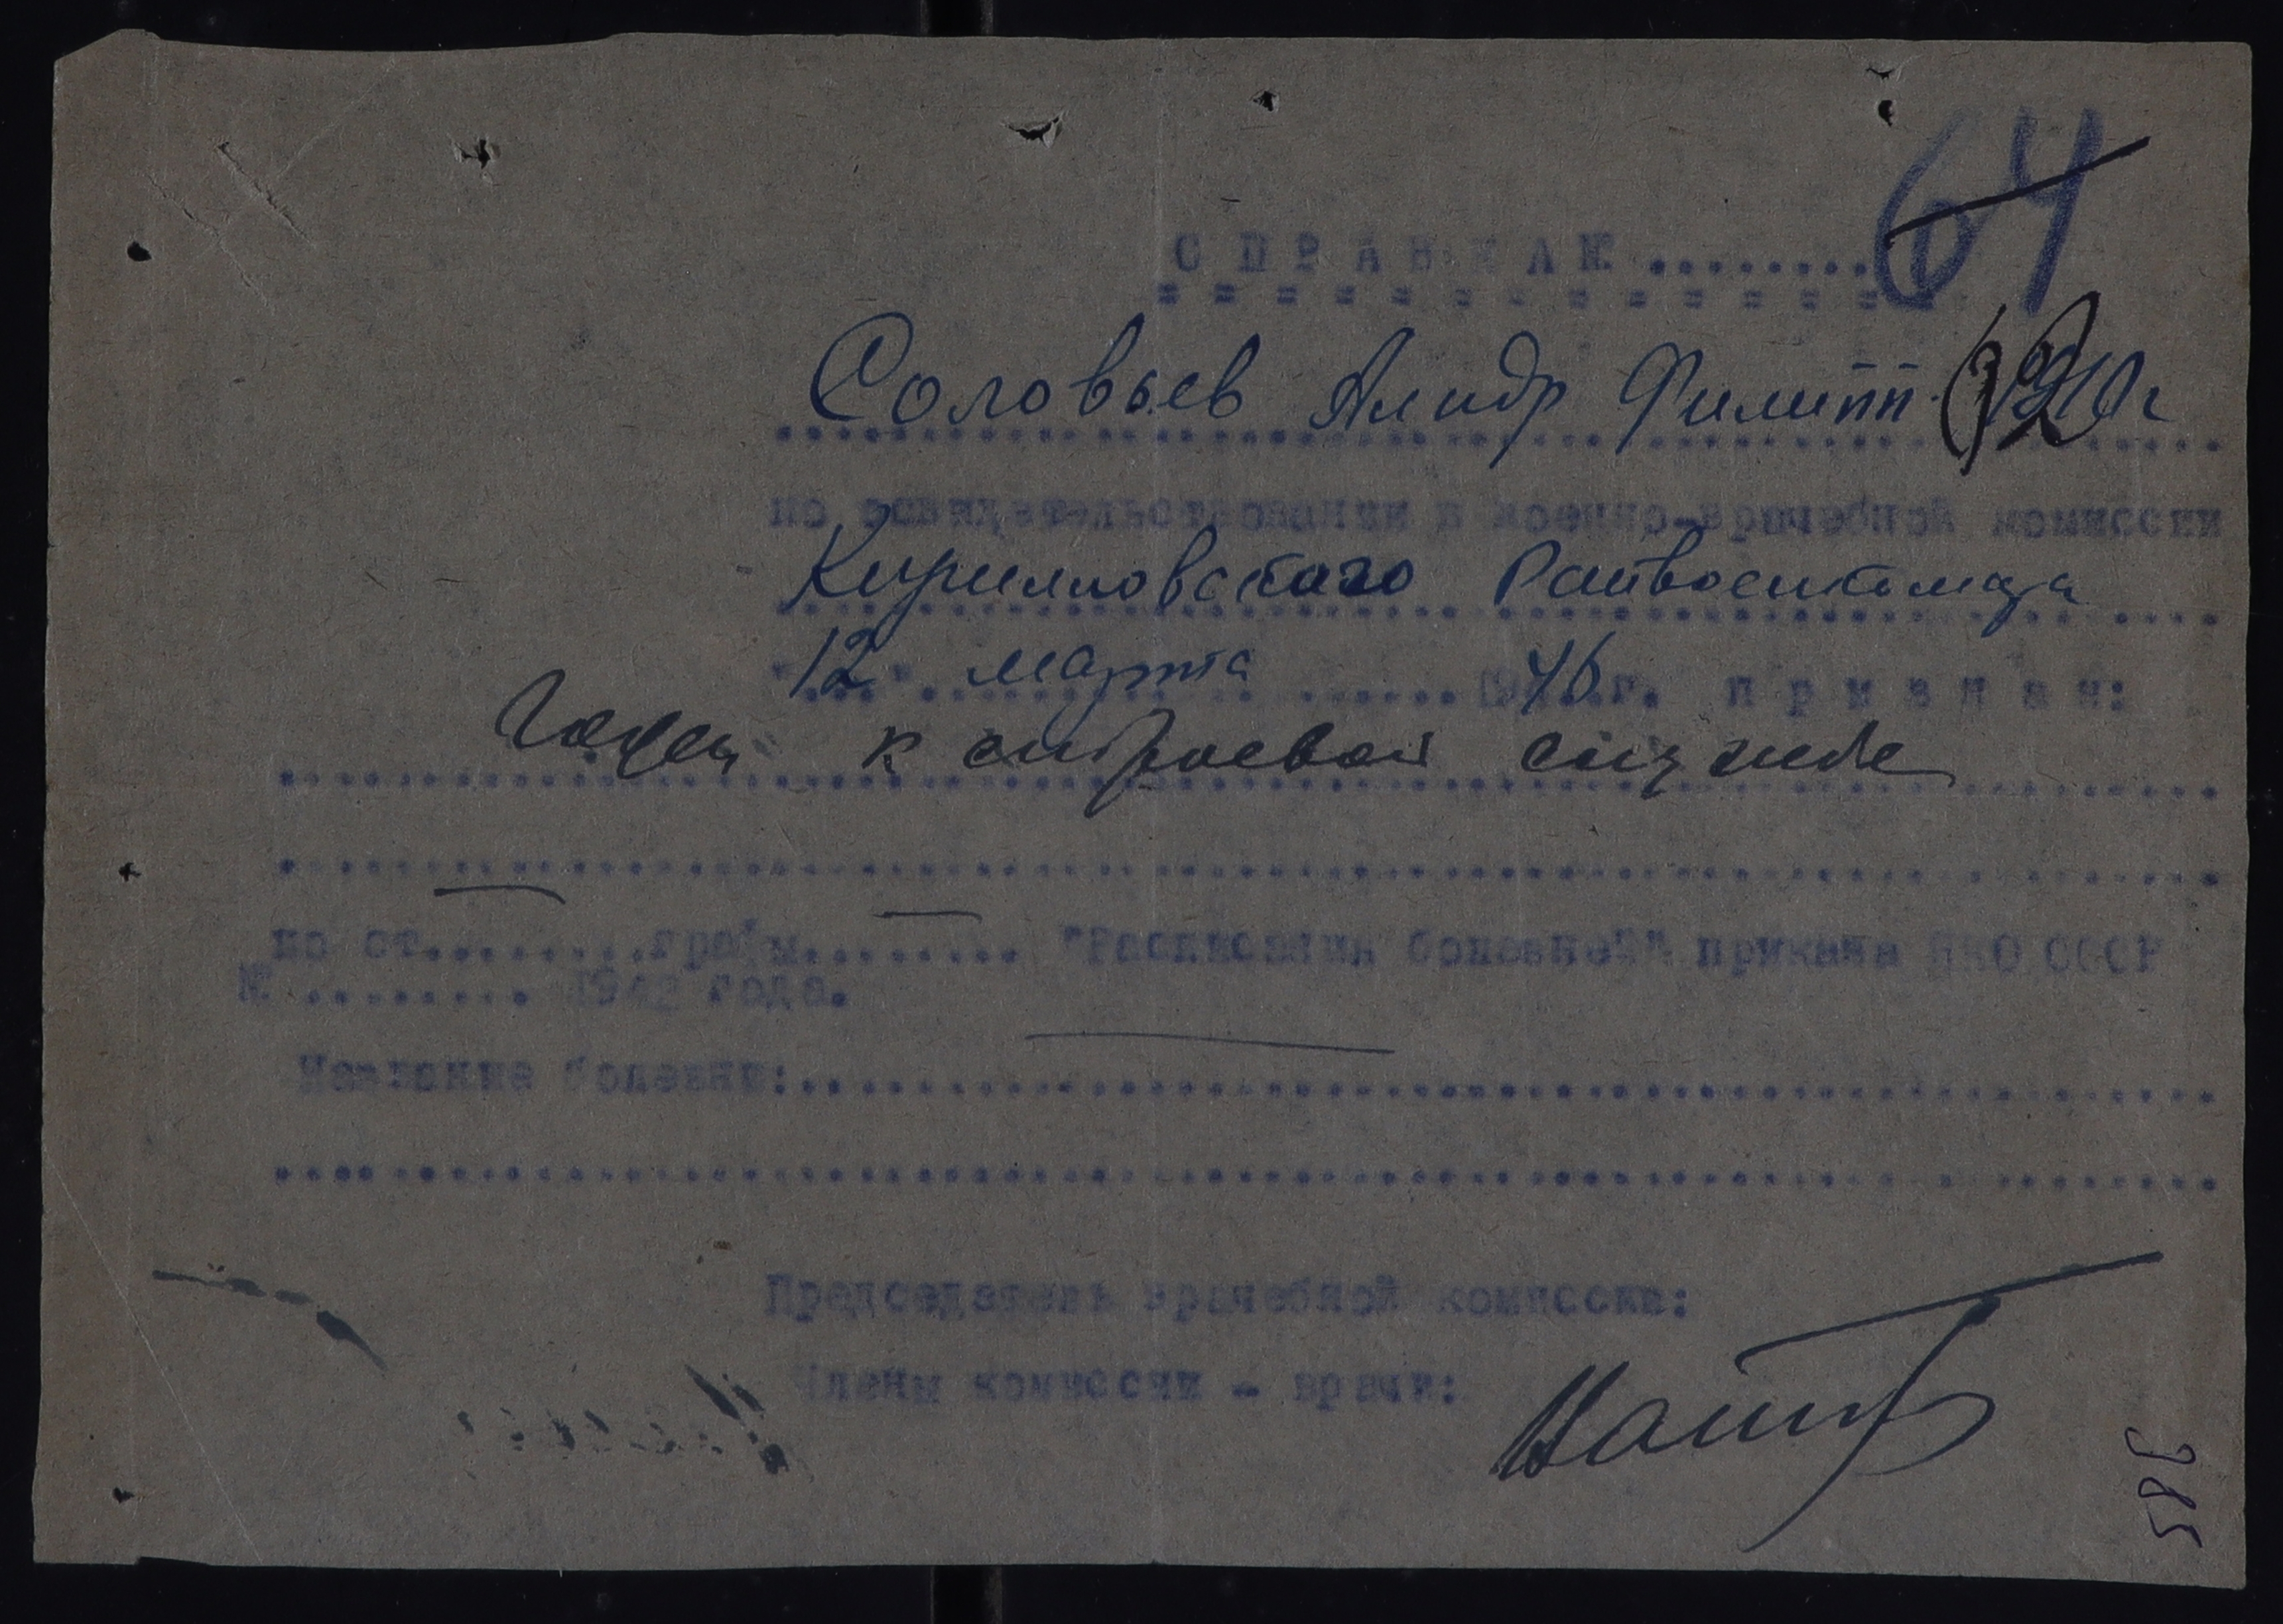 64
С П Р А В К А № ........
Соловьев Алндр Филипп. 1910г
по освидетельствовании в военно-врачебной комиссии
Кирилловского Райвоенкомата
"12" марта 1946 г. п р и з н а н:
Годен к строевой службе
по ст.........графы......... "Расписания болезней" приказа НКО СССР
№ ......... 1942 года.
Название болезни:
Председатель врачебной комиссии:
Члены комиссии - врачи:
385